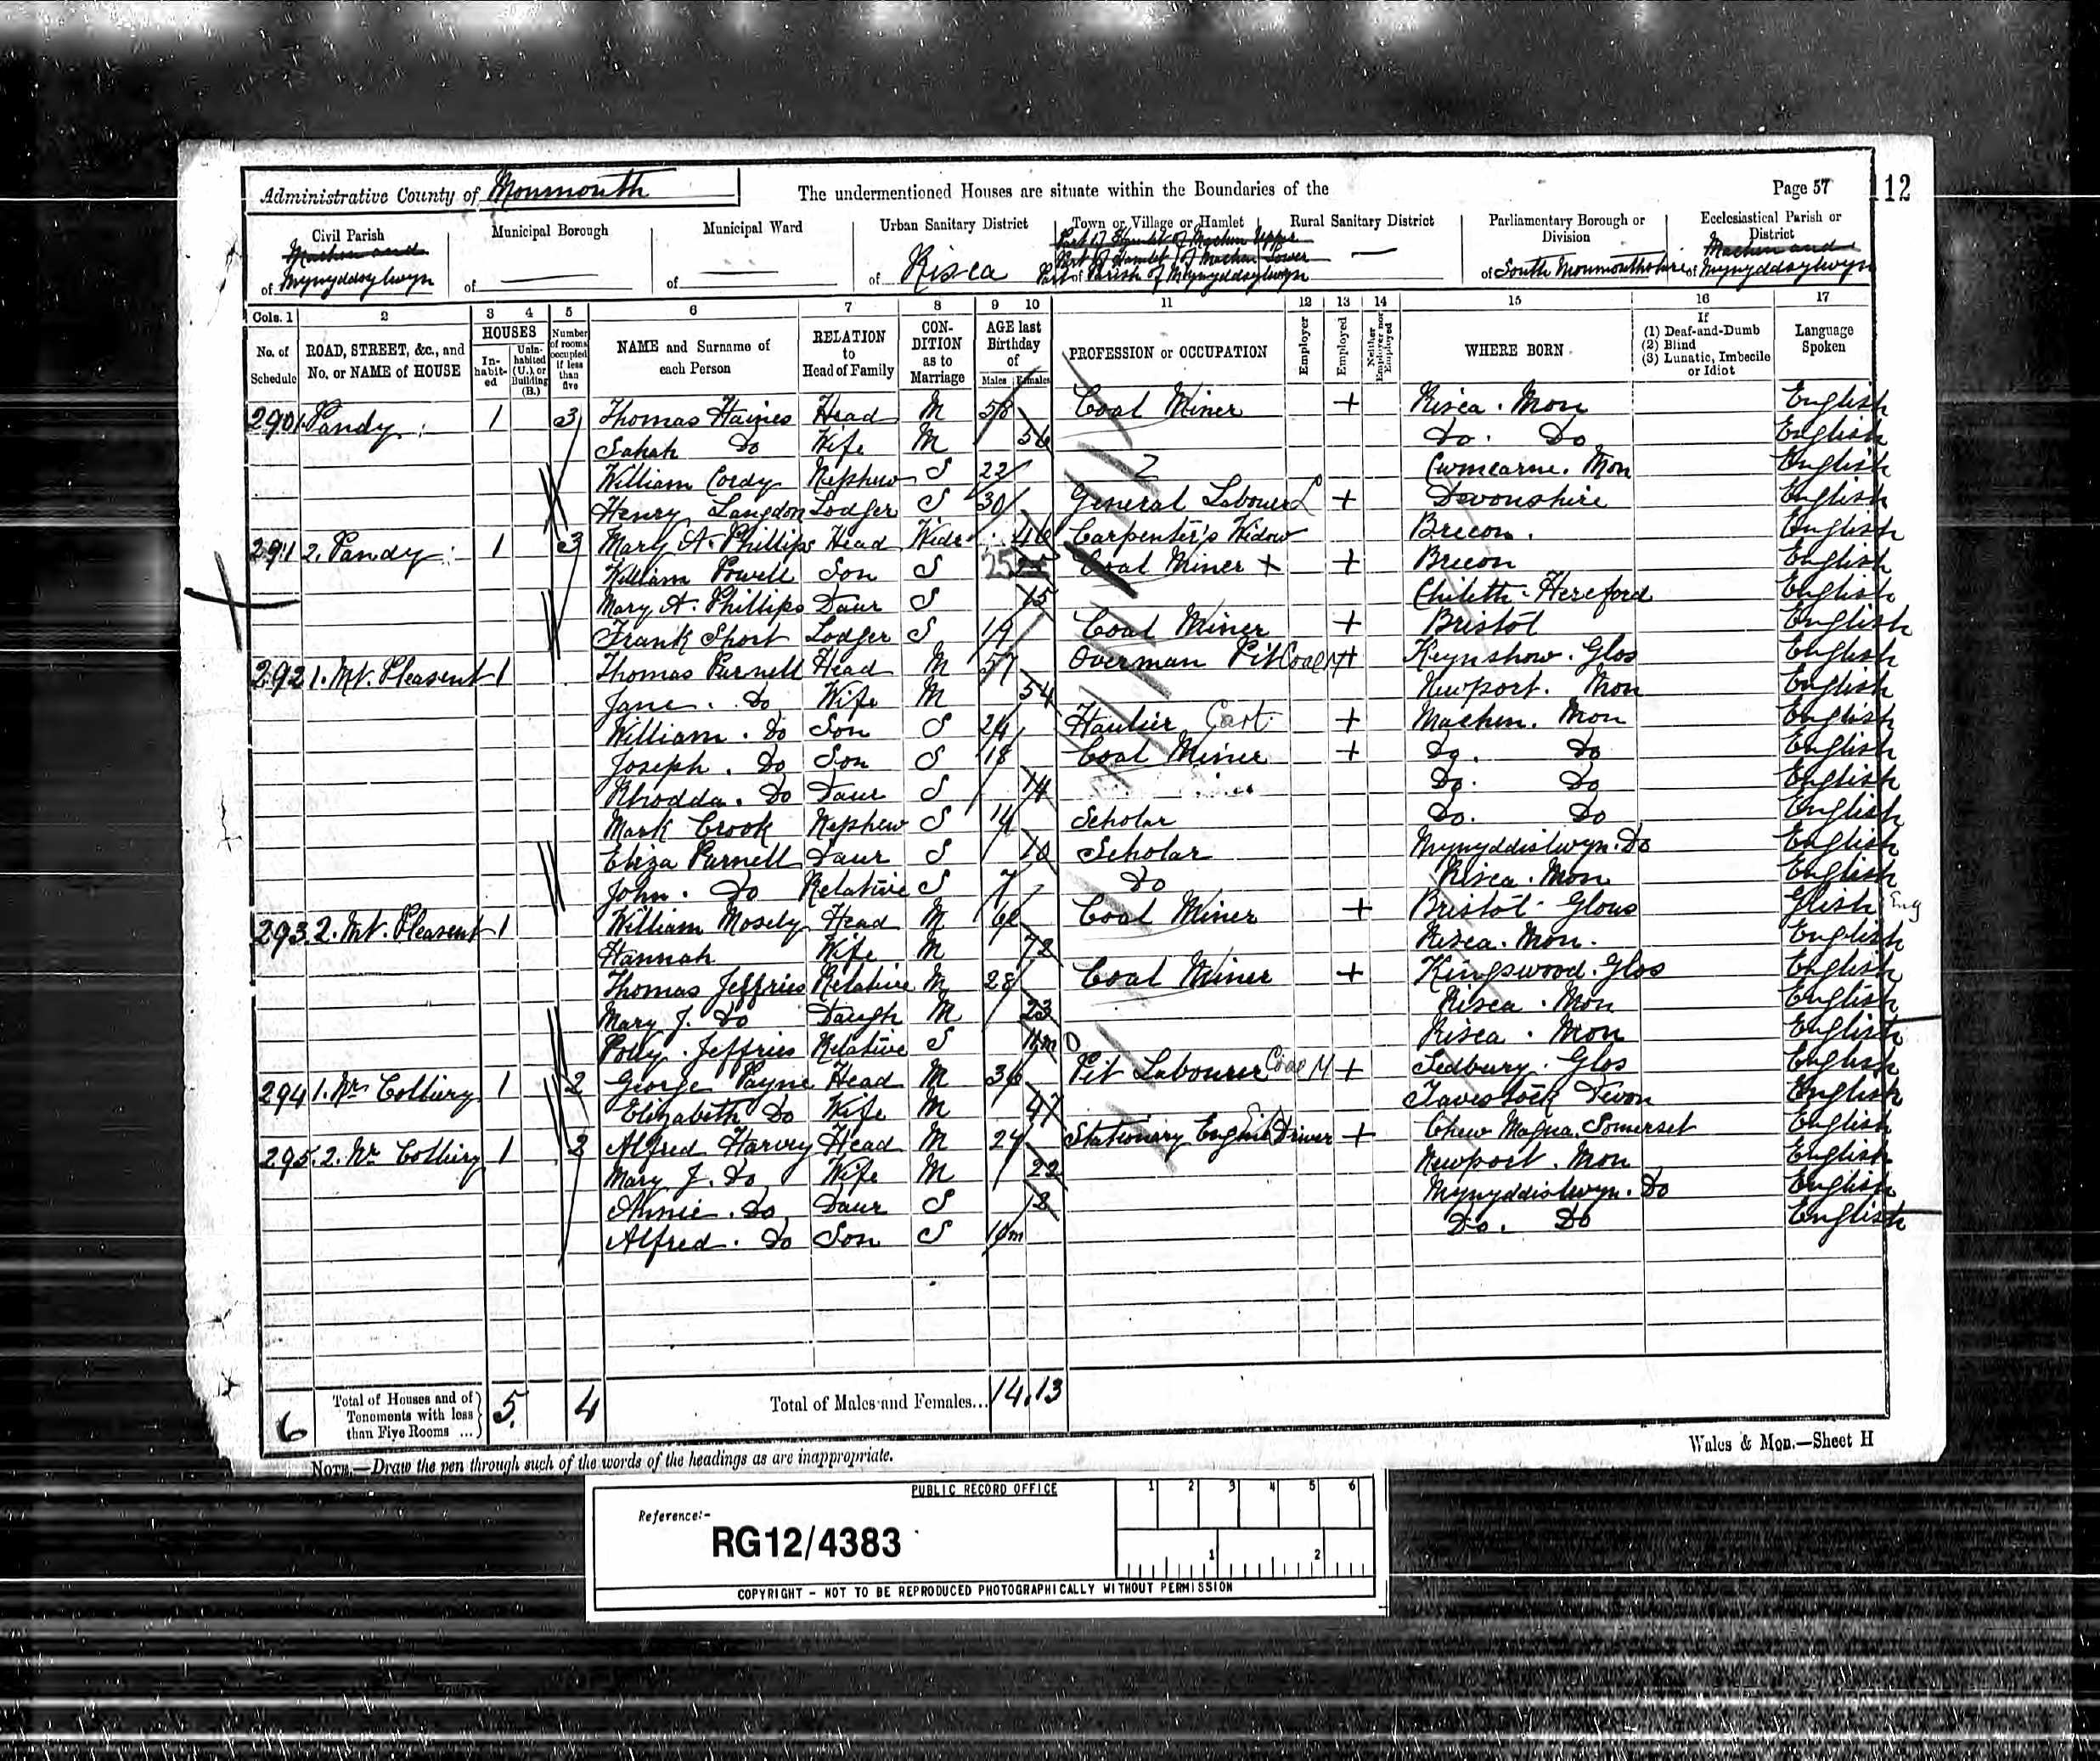 Administrative County of Monmouth The undermentioned Houses are situate within the Boundaries of the Page 57 112
Civil Parish Municipal Borough Municipal Ward Urban Sanitary District Town or Village or Hamlet Rural Sanitary District Parliamentary Borough or Division Ecclesiastical Parish or District
Machen and Part of Hamlet of Machen Upper Machen and
Part of Hamlet of Machen Lower
of Mynyddsylwyn of of of Risca Part of Parish of Mynyddsylwyn of South Monmouthshire of Mynyddsylwyn
Cols. 1 2 3 4 5 6 7 8 9 10 11 12 13 14 15 16 17
No. of Schedule ROAD, STREET, &c., and No. or NAME of HOUSE HOUSES In-habit-ed Unin-habited (U.), or Building (B.) Number of rooms occupied if less than five NAME and Surname of each Person RELATION to Head of Family CON-DITION as to Marriage AGE last Birthday of Males Females PROFESSION or OCCUPATION Employer Employed Neither Employer nor Employed WHERE BORN If (1) Deaf-and-Dumb (2) Blind (3) Lunatic, Imbecile or Idiot Language Spoken
290 1. Pandy 1 3 Thomas Haines Head M 58 Coal Miner + Risca. Mon English
Sahah Do Wife M 56 Do. Do English
William Cordy Nephew S 22 Cwmcarne. Mon English
Henry Langdon Lodger S 30 General Labourer + Devonshire English
291 2. Pandy 1 3 Mary A. Phillips Head Wido 46 Carpenter's Widow Brecon. English
William Powell Son S 25 Coal Miner + + Brecon English
Mary A. Phillips Daur S 15 Hereford English
Frank Short Lodger S 19 Coal Miner + Bristol English
292 1. Mt. Pleasent 1 Thomas Purnell Head M 57 Overman Pit Coal M + Keynshow. Glos English
Jane. Do Wife M 54 Newport. Mon English
William. Do Son S 24 Haulier Cart + Machen. Mon English
Joseph. Do Son S 18 Coal Miner + Do. Do English
Rhodda. Do Daur S 14 Do. Do English
Mark Crook Nephew S 14 Scholar Do. Do English
Eliza Purnell Daur S 10 Scholar Mynyddislwyn. Do English
John. Do Relative S 7 Do Risca. Mon English
293 2. Mt. Pleasent 1 William Mosely Head M Coal Miner + Bristol Glous Glish Eng
Hannah Wife M 72 Risca. Mon. English
Thomas Jeffries Relative M 28 Coal Miner + Kingswood. Glos English
Mary J. Do Daugh M 23 Risca. Mon English
Polly. Jeffries Relative S 11m Risca. Mon English
294 1. Nr Colliery 1 2 George Payne Head M 36 Pit Labourer Coal M + Sedbury. Glos English
Elizabeth Do Wife M 47 Tavestock Devon English
295. 2. Nr Colliery 1 2 Alfred Harvey Head M 24 Stationary Engine Driver + Chew Magna. Somerset English
Mary J. Do Wife M 22 Newport. Mon English
Annie. Do Daur S 2 Mynyddislwyn. Do English
Alfred. Do Son S 10m Do. Do English
6 Total of Houses and of Tenements with less than Five Rooms ... 5. 4 Total of Males and Females... 14. 13
NOTE.—Draw the pen through such of the words of the headings as are inappropriate. Wales & Mon.—Sheet H
PUBLIC RECORD OFFICE
1 2 3 4 5 6
Reference:-
RG12/4383
1 2
COPYRIGHT - NOT TO BE REPRODUCED PHOTOGRAPHICALLY WITHOUT PERMISSION